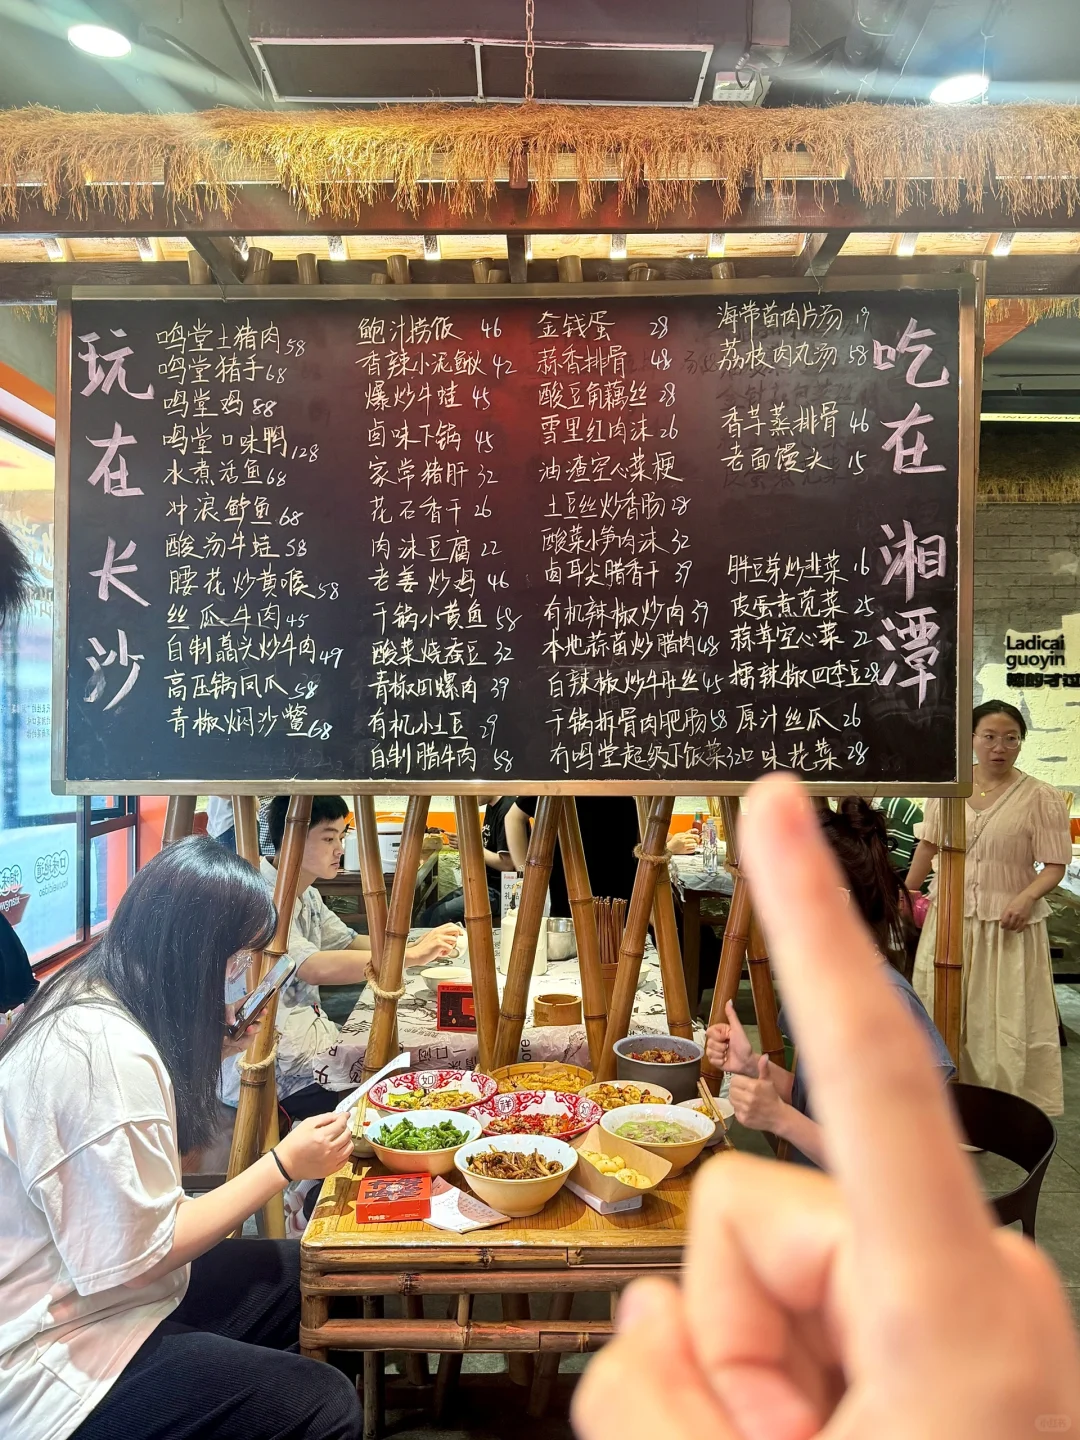 玩在长沙
鸣堂土猪肉58
鸣堂猪手68
鸣堂鸡88
鸣堂口味鸭128
水煮活鱼68
冲浪鲈鱼68
酸汤牛蛙58
腰花炒黄喉58
丝瓜牛肉45
自制藠头炒牛肉49
高压锅凤爪58
青椒焖沙鳖68
鲍汁捞饭 46
香辣小泥鳅42
爆炒牛蛙 45
卤味下锅 45
家常猪肝32
花石香干26
肉沫豆腐22
老姜炒鸡46
干锅小黄鱼58
酸菜烧蚕豆32
青椒田螺肉39
有机小土豆29
自制腊牛肉58
金钱蛋 28
蒜香排骨 48
酸豆角藕丝28
雪里红肉沫26
油渣空心菜梗
土豆丝炒香肠28
酸菜小笋肉沫32
卤耳尖腊香干39
有机辣椒炒肉39
本地蒜苗炒腊肉48
白辣椒炒牛肚丝45
干锅拆骨肉肥肠58
有鸣堂超级下饭菜32
海带苗肉片汤19
荔枝肉丸汤58
香芋蒸排骨46
老面馒头 15
胖豆芽炒韭菜16
皮蛋煮苋菜25
蒜茸空心菜22
擂辣椒四季豆28
原汁丝瓜26
口味花菜28
吃在湘潭
Ladicai
guoyin
辣的才过
如
祥
小红书